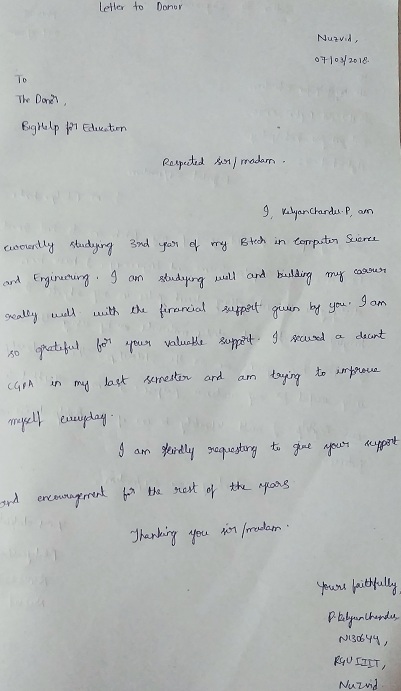 Letter to Donor
Nuzvid,
07/03/2018
To
The Donor,
BigHelp for Education
Respected sir/madam.
I, KalyanChandu.P, am
currently studying 3rd year of my Btech in Computer Science
and Engineering. I am studying well and building my career
really well with the financial support given by you. I am
so grateful for your valuable support. I secured a decent
CGPA in my last semester and am trying to improve
myself everyday.
I am kindly requesting to give your support
and encouragement for the rest of the years.
Thanking you sir/madam.
Yours faithfully,
P.KalyanChandu
N130644,
RGUIIIT,
Nuzvid.